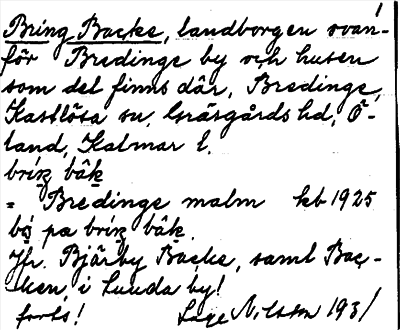 1
Bring Backe, landborgen ovan-
för Bredinge by och husen
som del finns där, Bredinge,
Kastlösa sn, Gräsgårds hd, Ö-
land, Kalmar l.
briŋ bàk
= Bredinge malm kb 1925
bó pa briŋ bàk.
Jfr. Bjärby Backe, samt Bac-
ken, i Lunda by!
forts! Nilsson 1931